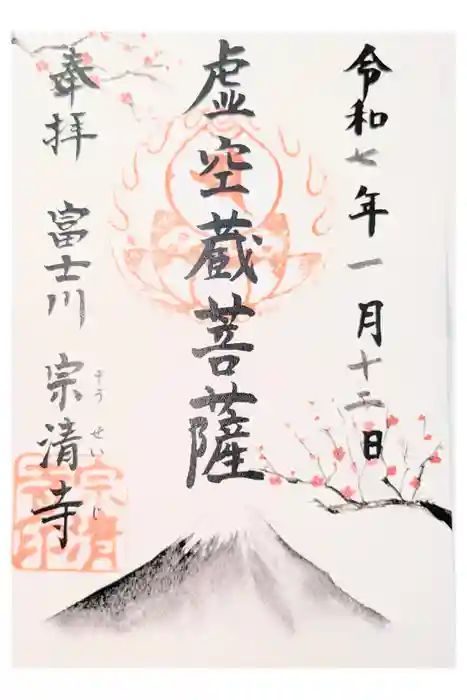 令和七年一月十二日
虚空蔵菩薩
奉拝 富士川 宗清寺
そうせいじ
宗清寺印